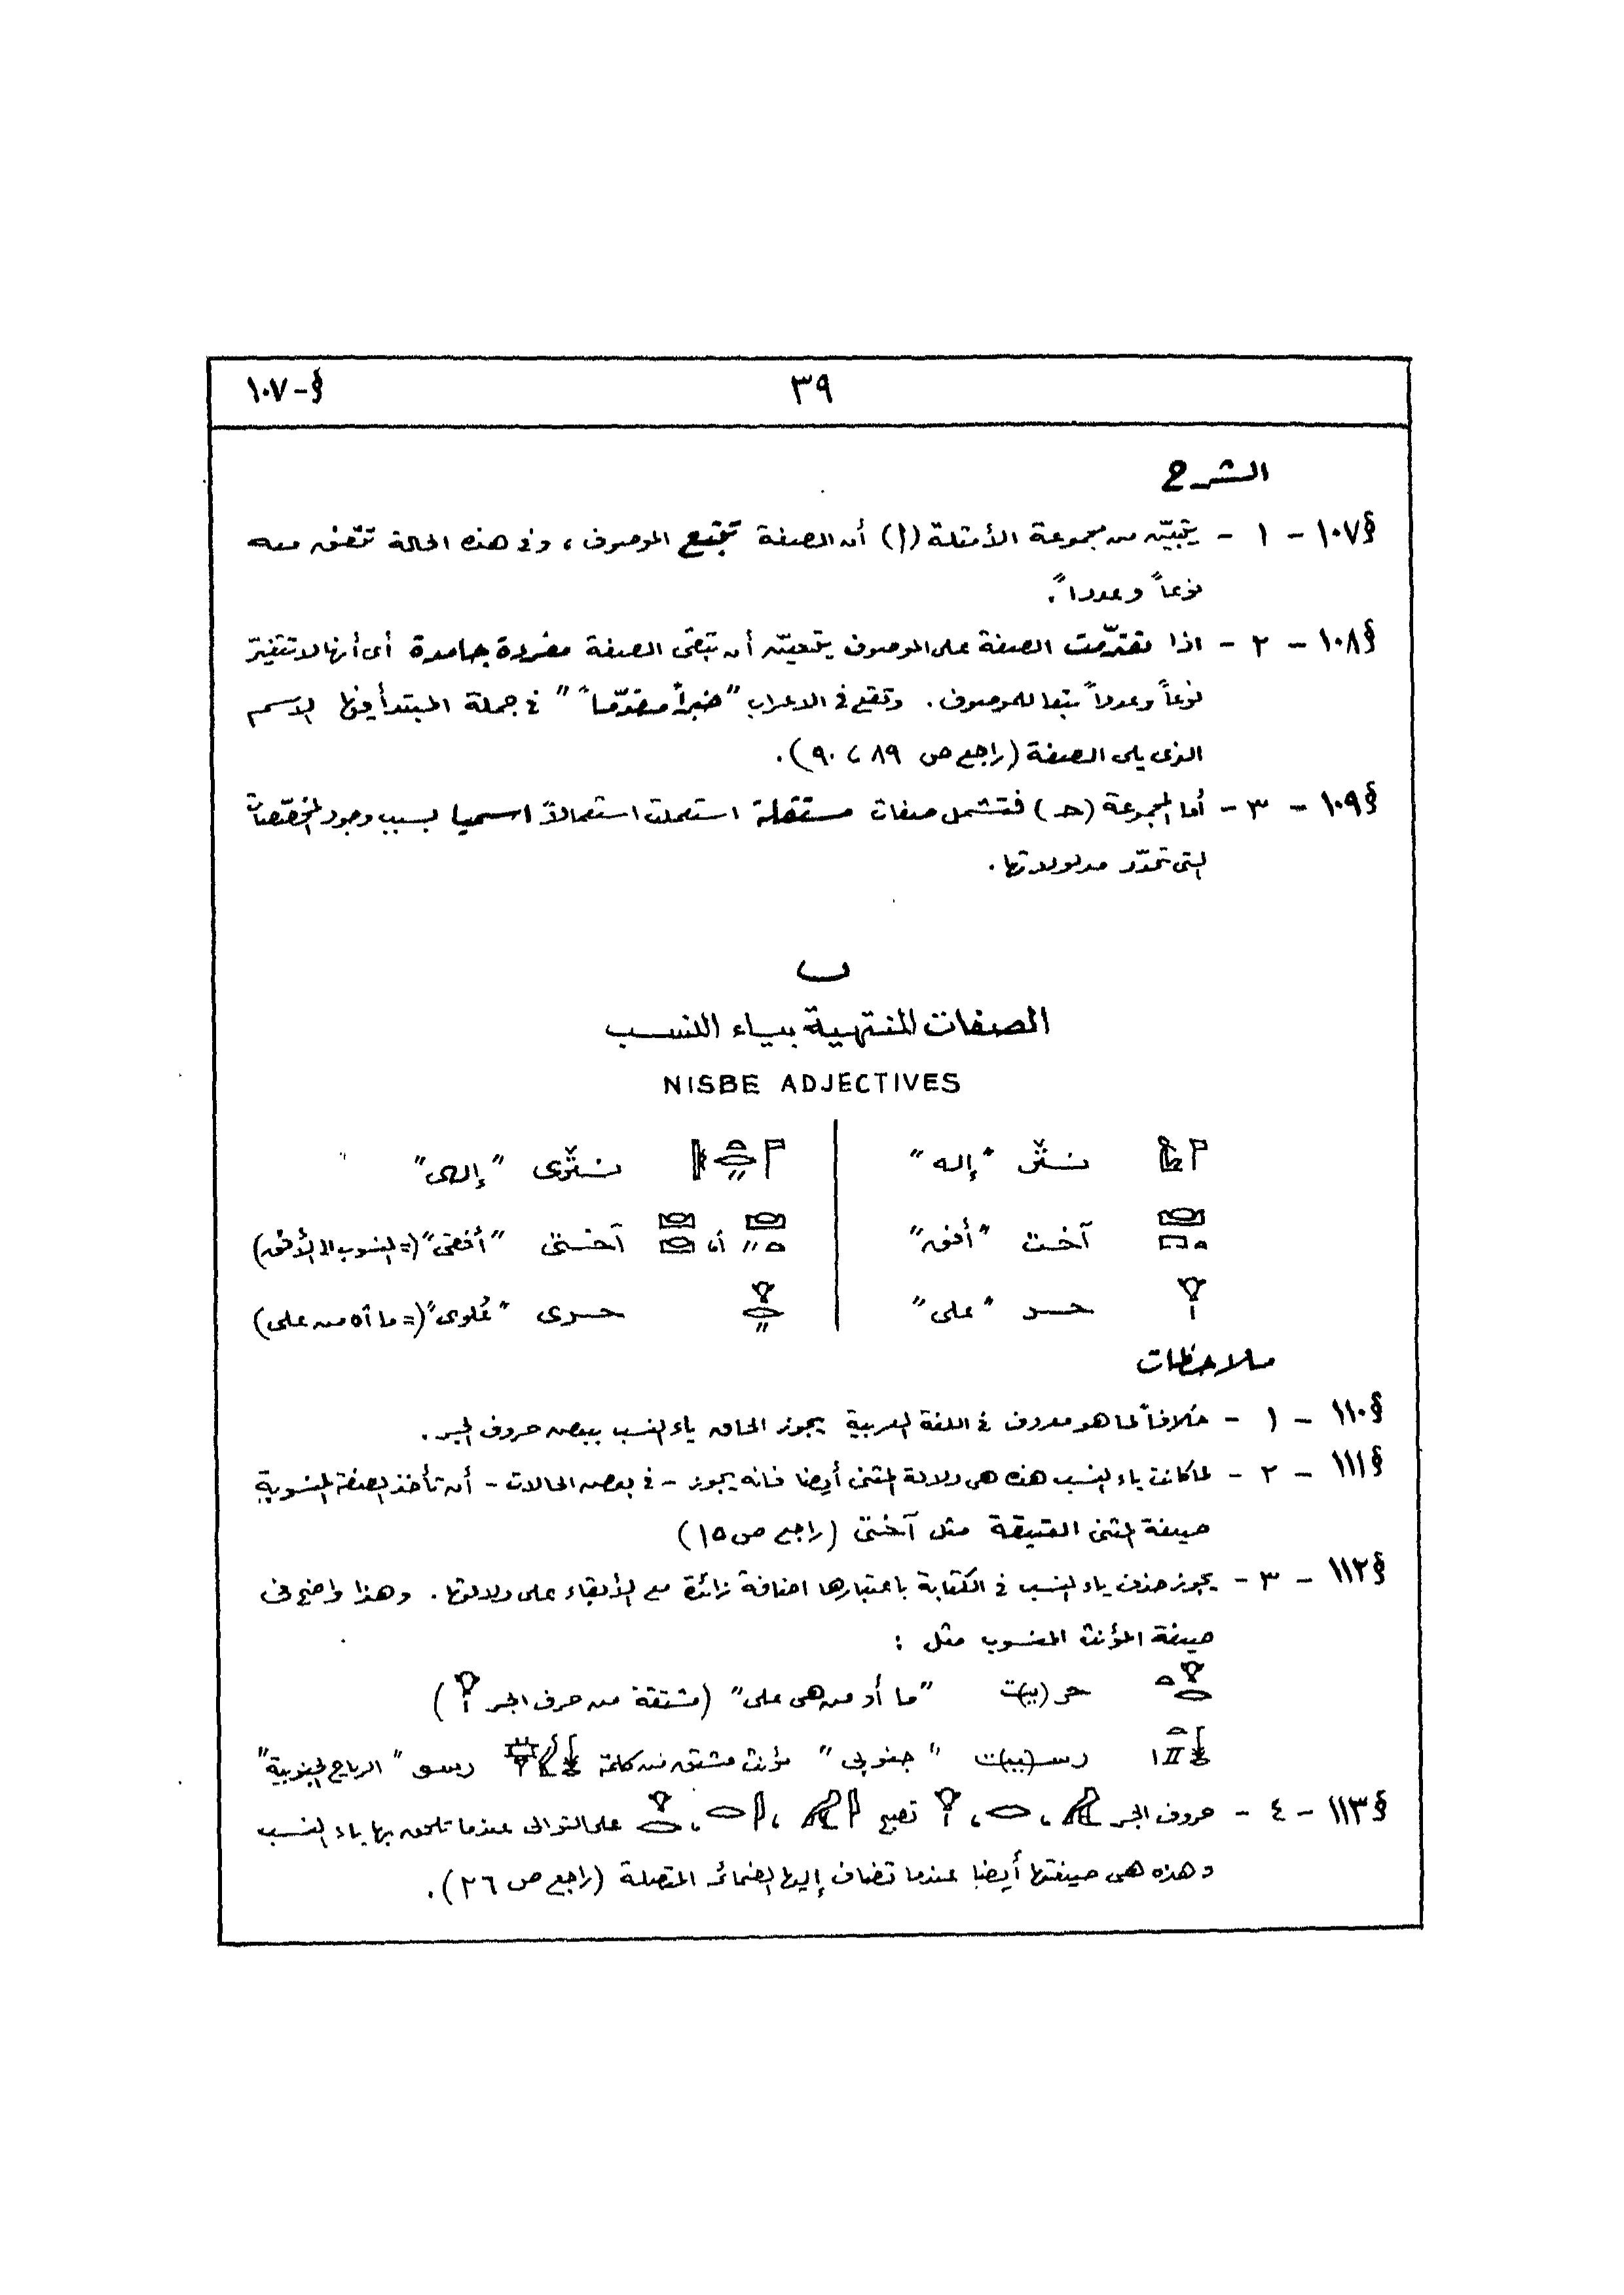 §-١٠٧
٣٩
الشرح
§١٠٧ - ١ - يتبيّن من مجموعة الأمثلة (أ) أن الصفة تتبع الموصوف ، وفى هذه الحالة تتفق معه
نوعاً وعدداً .
§١٠٨ - ٢ - اذا تقدّمت الصفة على الموصوف يتعيّن أن تبقى الصفة مفردة جامدة أى أنها لا تتغيّر
نوعاً وعدداً تبعا للموصوف . وتقع فى الاعراب "خبراً مقدّماً" فى جملة المبتدأ فيها الاسم
الذى يلى الصفة (راجع ص ٨٩ ، ٩٠) .
§١٠٩ - ٣ - أما المجموعة (حـ) فتشمل صفات مستقلة استعملت استعمالاً اسميا بسبب وجود المخصّصات
التى تحدّد مدلولاتها .
ب
الصفات المنتهية بياء النسب
NISBE ADJECTIVES
نثر "إله" نثرى "إلهى"
آخت "أفق" أو آختى "أفقى" (= المنسوب الى الأفق)
حر "على" حرى "عُلوى" (= ما أو من على)
ملاحظات
§١١٠ - ١ - خلافاً لما هو معروف فى اللغة العربية يجوز الحاق ياء النسب ببعض حروف الجر .
§١١١ - ٢ - لما كانت ياء النسب هذه هى دلالة المثنى أيضا فانه يجوز - فى بعض الحالات - أن تأخذ الصفة المنسوبة
صيغة المثنى العتيقة مثل آختى (راجع ص ١٥)
§١١٢ - ٣ - يجوز حذف ياء النسب فى الكتابة باعتبارها اضافة زائدة مع الأبقاء على دلالتها . وهذا واضح فى
صيغة المؤنث المنسوب مثل :
حر (ي)ت "ما أو من هى على" (مشتقة من حرف الجر )
رس(ي)ت "جنوبى" مؤنث مشتق من كلمة رسو "الرياح الجنوبية"
§١١٣ - ٤ - حروف الجر ، ، تصبح ، ، على التوالى عندما تلحق بها ياء النسب
وهذه هى صيغتها أيضا عندما تضاف إليها الضمائر المتصلة (راجع ص ٢٦) .